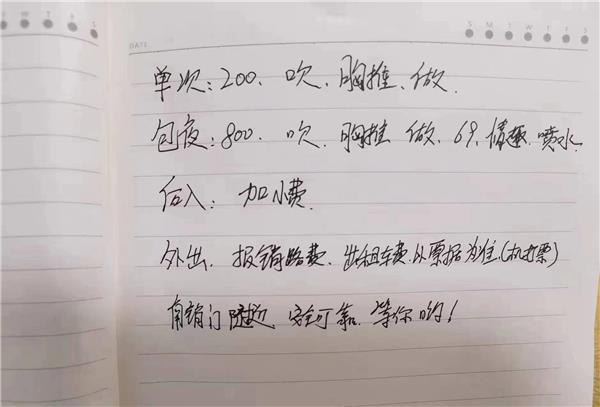 DATE
S M T W T F S
单次:200、吹、胸推、做、
包夜:800、吹、胸推 做、69、情趣、喷水、
后入: 加小费、
外出、报销路费、出租车费以票据为准(机打票)
门 安全可靠、等你哟!